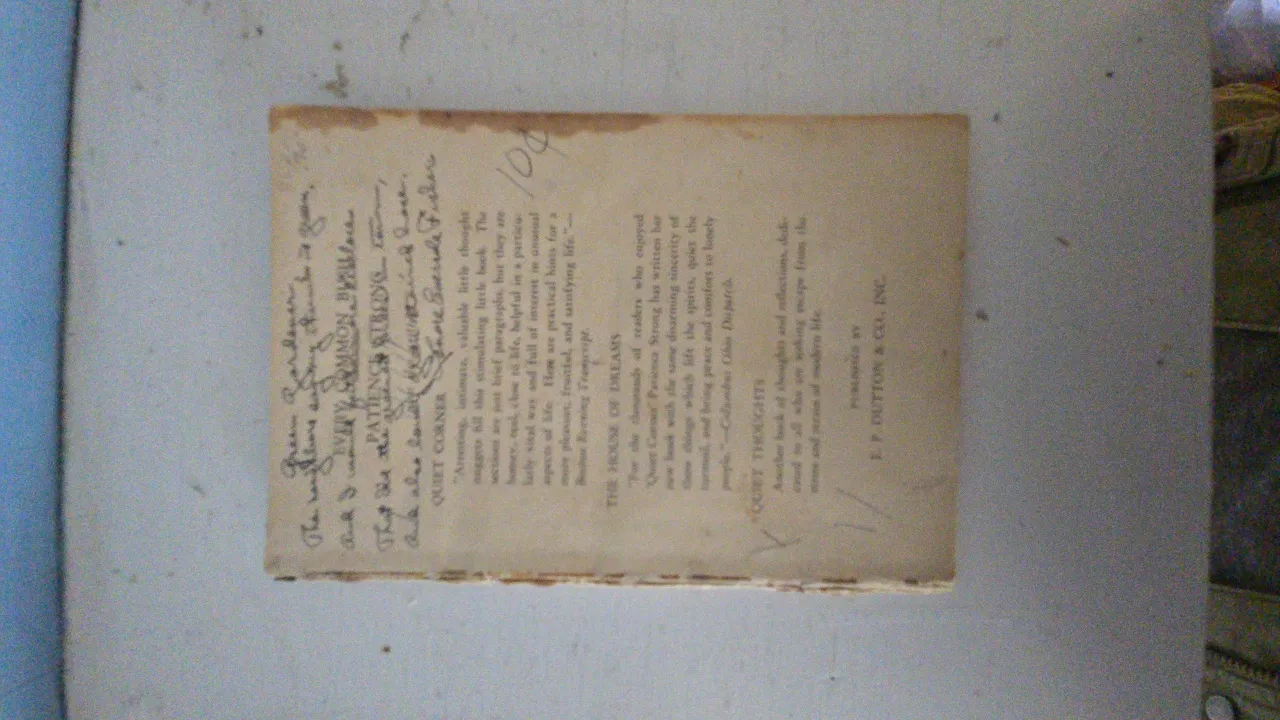 Green Gardener
The neighbors say my thumb is green,
EVERY COMMON BUSH
And I would
PATIENCE STRONG
That the
And also
QUIET CORNER
10¢
"Arresting, intimate, valuable little thought
nuggets fill this stimulating little book. The
sections are just brief paragraphs, but they are
homey, real, close to life, helpful in a particu-
larly vital way and full of interest in unusual
aspects of life. Here are practical hints for a
more pleasant, fruitful, and satisfying life."—
Boston Evening Transcript.
THE HOUSE OF DREAMS
"For the thousands of readers who enjoyed
'Quiet Corner' Patience Strong has written her
new book with the same disarming sincerity of
those things which lift the spirits, quiet the
turmoil, and bring peace and comfort to lonely
people."—Columbus Ohio Dispatch.
QUIET THOUGHTS
Another book of thoughts and reflections, dedi-
cated to all who are seeking escape from the
stress and strain of modern life.
PUBLISHED BY
E. P. DUTTON & CO., INC.